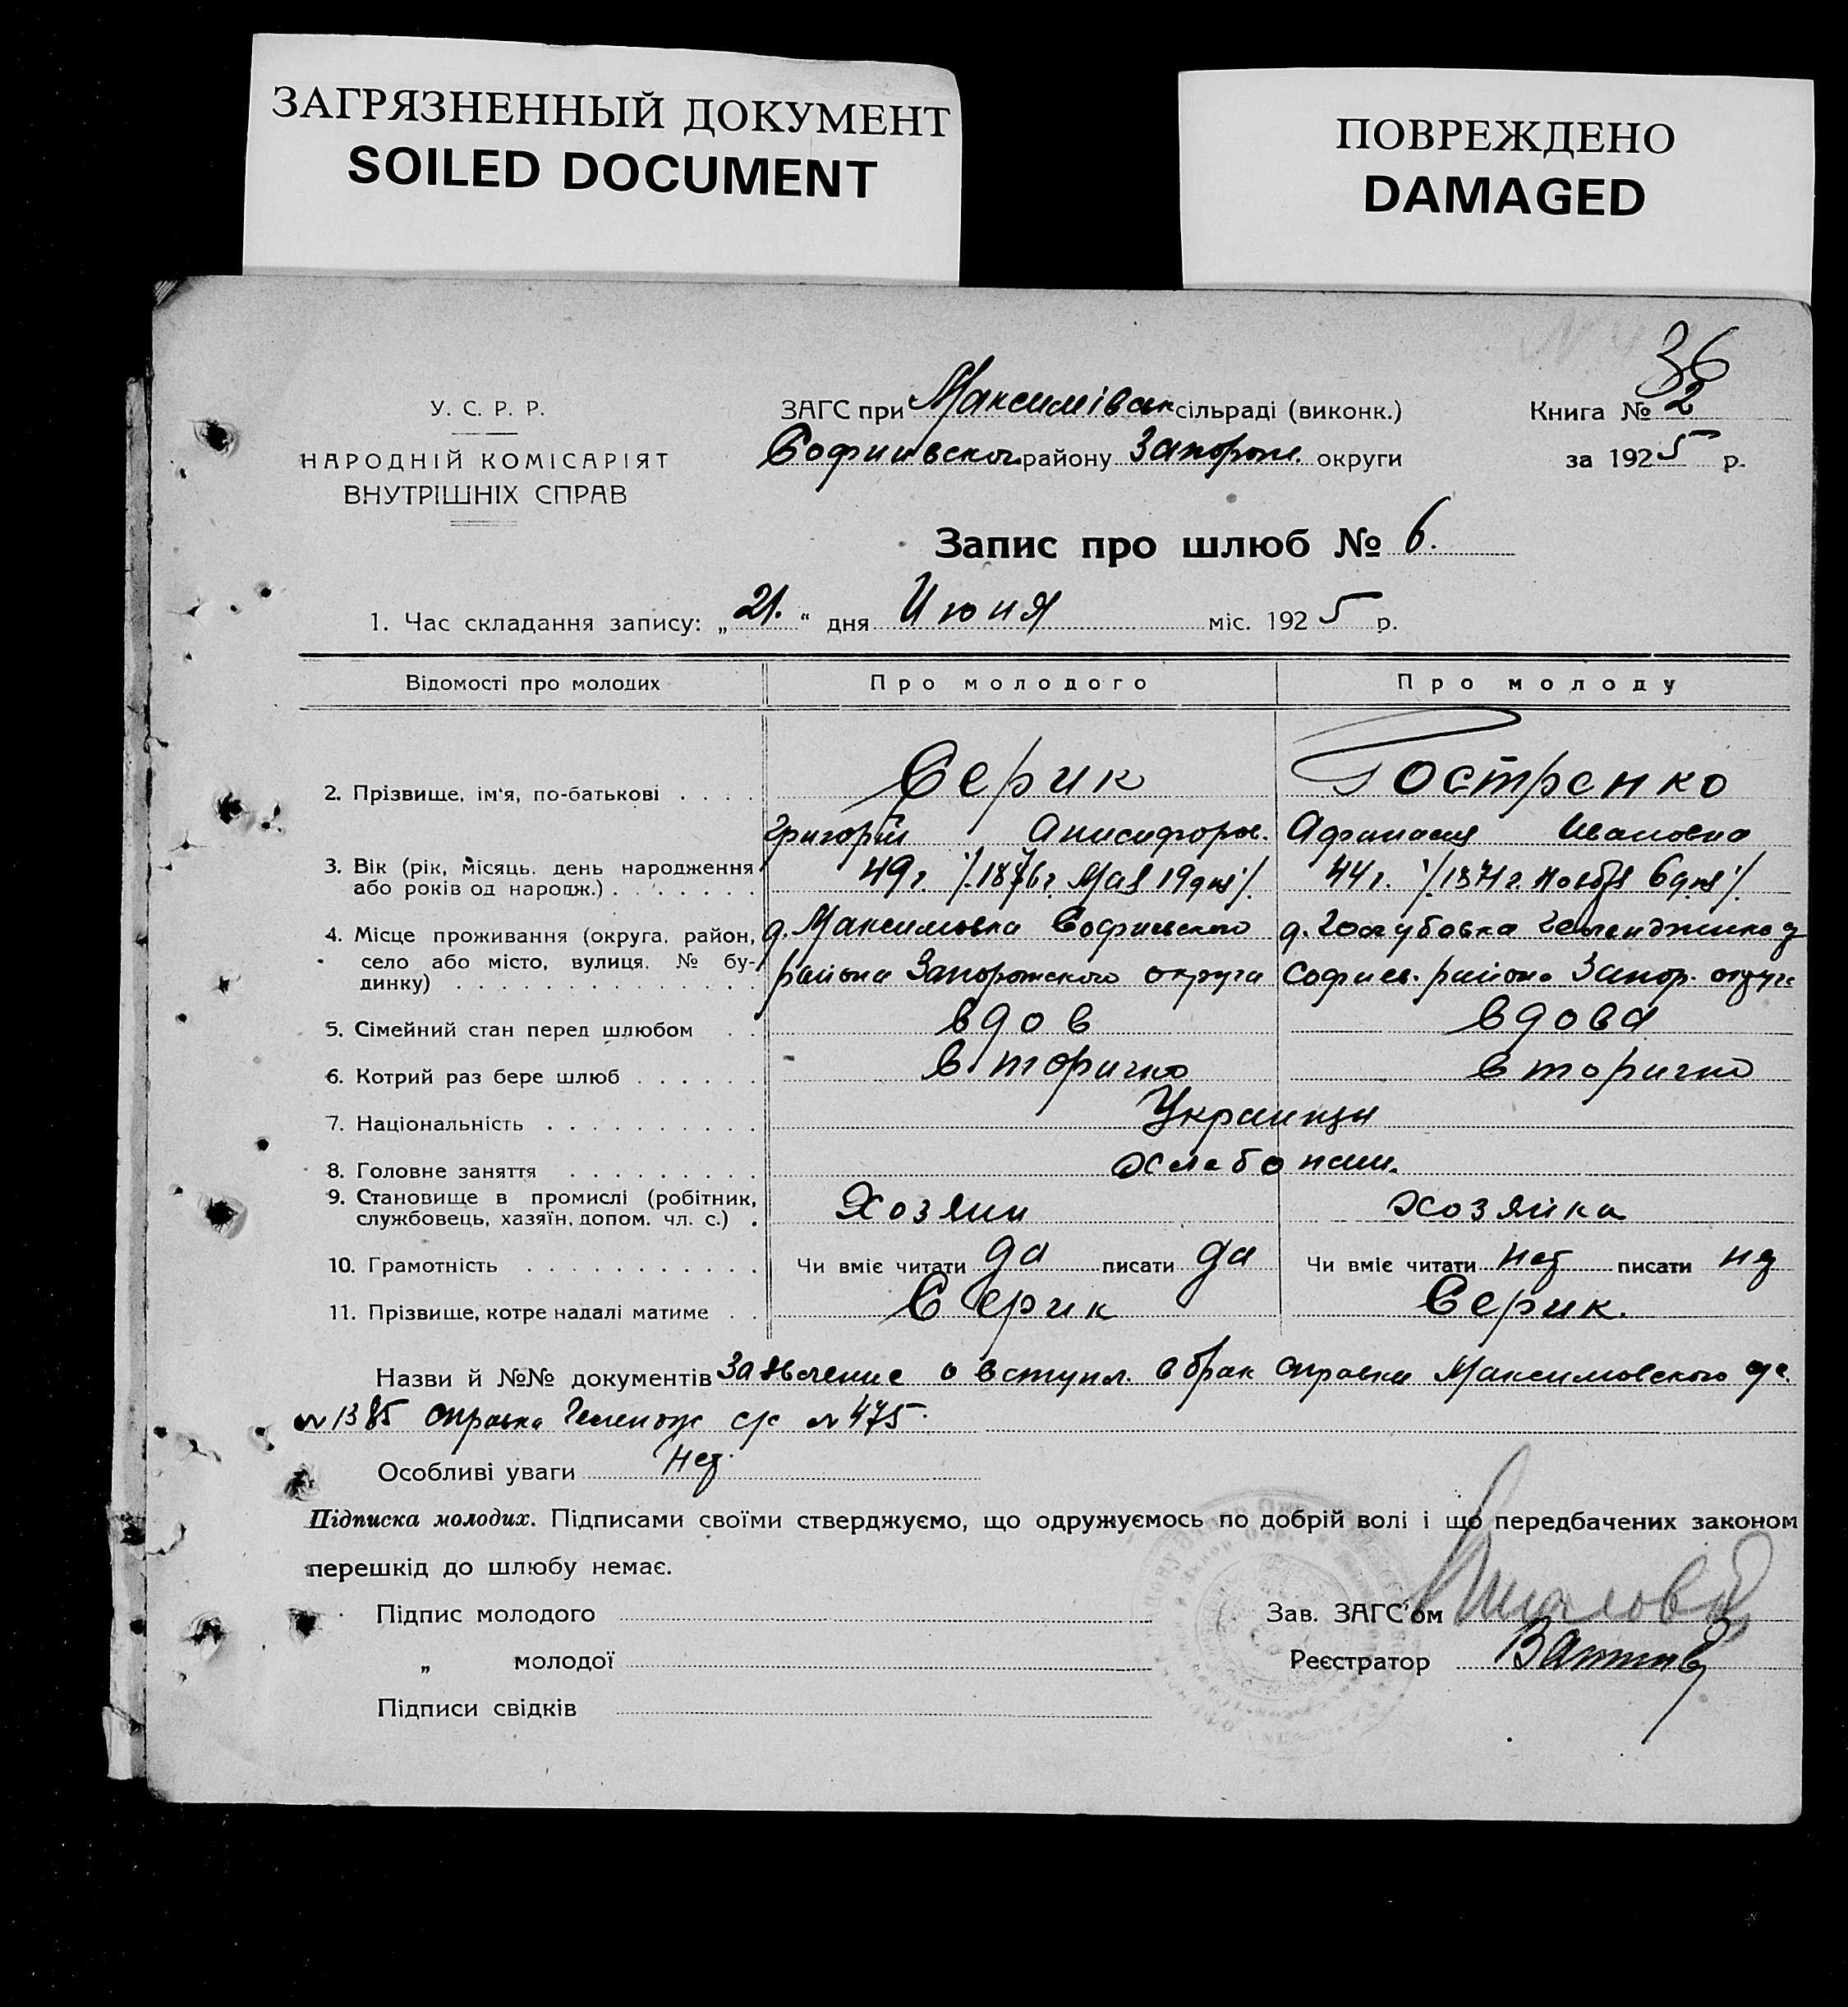 ЗАГРЯЗНЕННЫЙ ДОКУМЕНТ
SOILED DOCUMENT
ПОВРЕЖДЕНО
DAMAGED
36
У. С. Р. Р.
НАРОДНІЙ КОМІСАРІЯТ
ВНУТРІШНІХ СПРАВ
ЗАГС при Максимівськ сільраді (виконк.)
Софиивског району Запорож. округи
Книга № 2
за 1925 р.
Запис про шлюб № 6.
1. Час складання запису: „21." дня Июня міс. 1925 р.
Відомості про молодих Про молодого Про молоду
2. Прізвище, ім'я, по-батькові . . . . Серик Гостренко
Григорій Анисифоров. Афанасия Ивановна
3. Вік (рік, місяць, день народження 49 г. /.1876 г. Мая 19 дня/. 44 г. /.1871 г. Ноября 6 дня/.
або років од народж.) . . . . . . .
4. Місце проживання (округа, район, д. Максимовка Софиевского д. Голубовка
село або місто, вулиця, № бу- района Запорожского округа Софиев. района Запор. округа
динку) . . . . . . . . . . . . . .
5. Сімейний стан перед шлюбом . . вдов вдова
6. Котрий раз бере шлюб . . . . . . вторично вторично
7. Національність . . . . . . . . . . Украинцы
8. Головне заняття . . . . . . . . . хлебопаш.
9. Становище в промислі (робітник, Хозяин хозяйка
службовець, хазяїн, допом. чл. с.) .
10. Грамотність . . . . . . . . . . . Чи вміє читати да писати да Чи вміє читати нет писати нет
11. Прізвище, котре надалі матиме . . Серик Серик.
Назви й №№ документів Заявление о вступл. в брак справка Максимовского с/с.
№ 1385 справка с/с № 475.
Особливі уваги Нет.
Підписка молодих. Підписами своїми стверджуємо, що одружуємось по добрій волі і що передбачених законом
перешкід до шлюбу немає.
Підпис молодого
Зав. ЗАГС'ом
„ молодої
Реєстратор
Підписи свідків